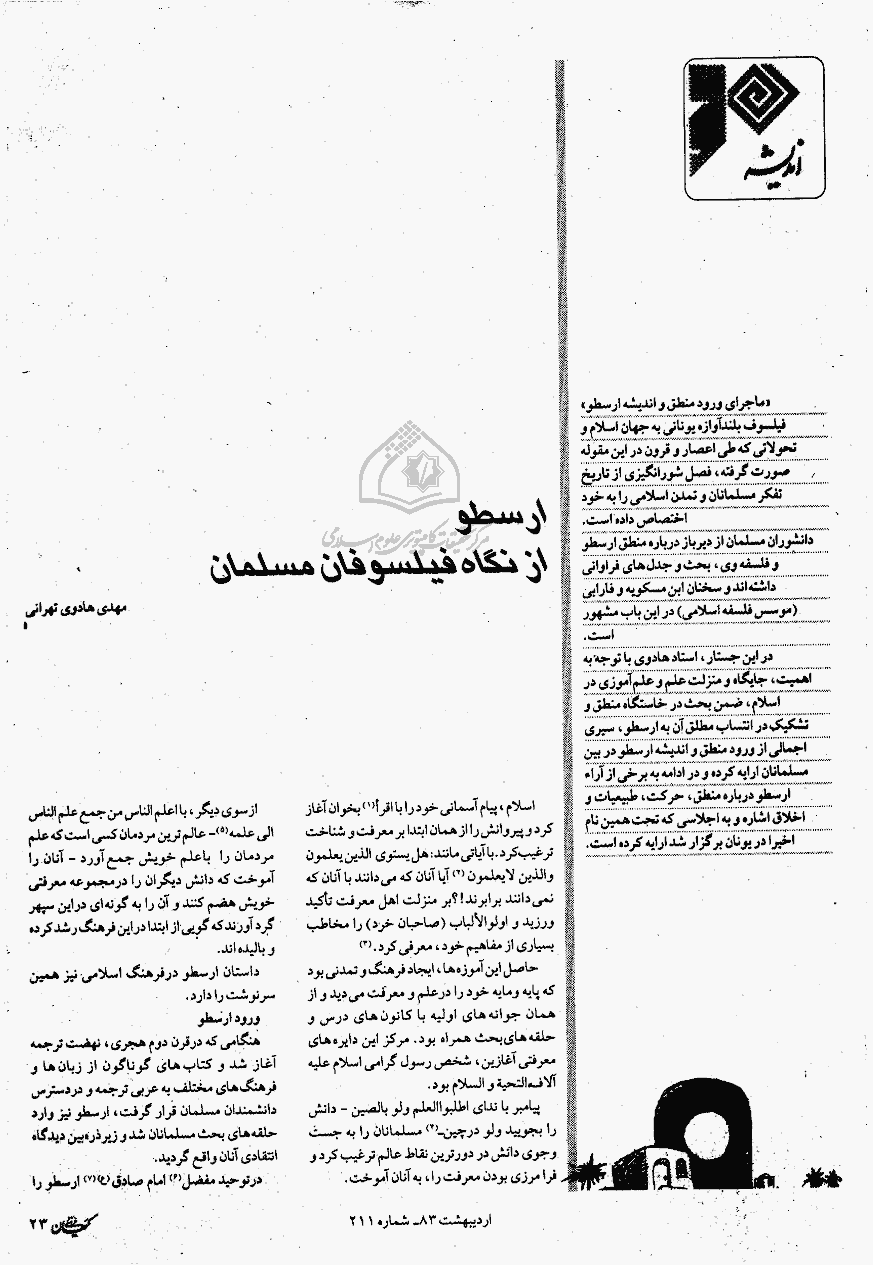 اندیشه
«ماجرای ورود منطق و اندیشه ارسطو»
فیلسوف بلندآوازه یونانی به جهان اسلام و
تحولاتی که طی اعصار و قرون در این مقوله
صورت گرفته، فصل شورانگیزی از تاریخ
تفکر مسلمانان و تمدن اسلامی را به خود
اختصاص داده است.
دانشوران مسلمان از دیرباز درباره منطق ارسطو
و فلسفه وی، بحث و جدل های فراوانی
داشته اند و سخنان ابن مسکویه و فارابی
(موسس فلسفه اسلامی) در این باب مشهور
است.
در این جستار، استاد هادوی با توجه به
اهمیت، جایگاه و منزلت علم و علم آموزی در
اسلام، ضمن بحث در خاستگاه منطق و
تشکیک در انتساب مطلق آن به ارسطو، سیری
اجمالی از ورود منطق و اندیشه ارسطو در بین
مسلمانان ارایه کرده و در ادامه به برخی از آراء
ارسطو درباره منطق، حرکت، طبیعیات و
اخلاق اشاره و به اجلاسی که تحت همین نام
اخیرا در یونان برگزار شد ارایه کرده است.
ارسطو
از نگاه فیلسوفان مسلمان
مرکز تحقیقات کامپیوتری علوم اسلامی
مهدی هادوی تهرانی
اسلام، پیام آسمانی خود را با اقرأ(۱) بخوان آغاز
کرد و پیروانش را از همان ابتدا بر معرفت و شناخت
ترغیب کرد. با آیاتی مانند: هل یستوی الذین یعلمون
والذین لایعلمون (۲) آیا آنان که می دانند با آنان که
نمی دانند برابرند!؟ بر منزلت اهل معرفت تأکید
ورزید و اولوالألباب (صاحبان خرد) را مخاطب
بسیاری از مفاهیم خود، معرفی کرد.(۳)
حاصل این آموزه ها، ایجاد فرهنگ و تمدنی بود
که پایه ومایه خود را درعلم و معرفت می دید و از
همان جوانه های اولیه با کانون های درس و
حلقه های بحث همراه بود. مرکز این دایره های
معرفتی آغازین، شخص رسول گرامی اسلام علیه
آلاف التحیة و السلام بود.
پیامبر با ندای اطلبواالعلم ولو بالصین - دانش
را بجویید ولو درچین-(۴) مسلمانان را به جست
وجوی دانش در دورترین نقاط عالم ترغیب کرد و
فرا مرزی بودن معرفت را، به آنان آموخت.
ازسوی دیگر، با اعلم الناس من جمع علم الناس
الی علمه(۵)- عالم ترین مردمان کسی است که علم
مردمان را باعلم خویش جمع آورد - آنان را
آموخت که دانش دیگران را درمجموعه معرفتی
خویش هضم کنند و آن را به گونه ای دراین سپهر
گرد آورند که گویی از ابتدا دراین فرهنگ رشد کرده
و بالیده اند.
داستان ارسطو درفرهنگ اسلامی نیز همین
سرنوشت را دارد.
ورود ارسطو
هنگامی که درقرن دوم هجری، نهضت ترجمه
آغاز شد و کتاب های گوناگون از زبان ها و
فرهنگ های مختلف به عربی ترجمه و دردسترس
دانشمندان مسلمان قرار گرفت، ارسطو نیز وارد
حلقه های بحث مسلمانان شد و زیر ذره بین دیدگاه
انتقادی آنان واقع گردید.
درتوحید مفضل(۶) امام صادق (ع)(۷) ارسطو را
اردیبهشت ۸۳- شماره ۲۱۱
۲۳